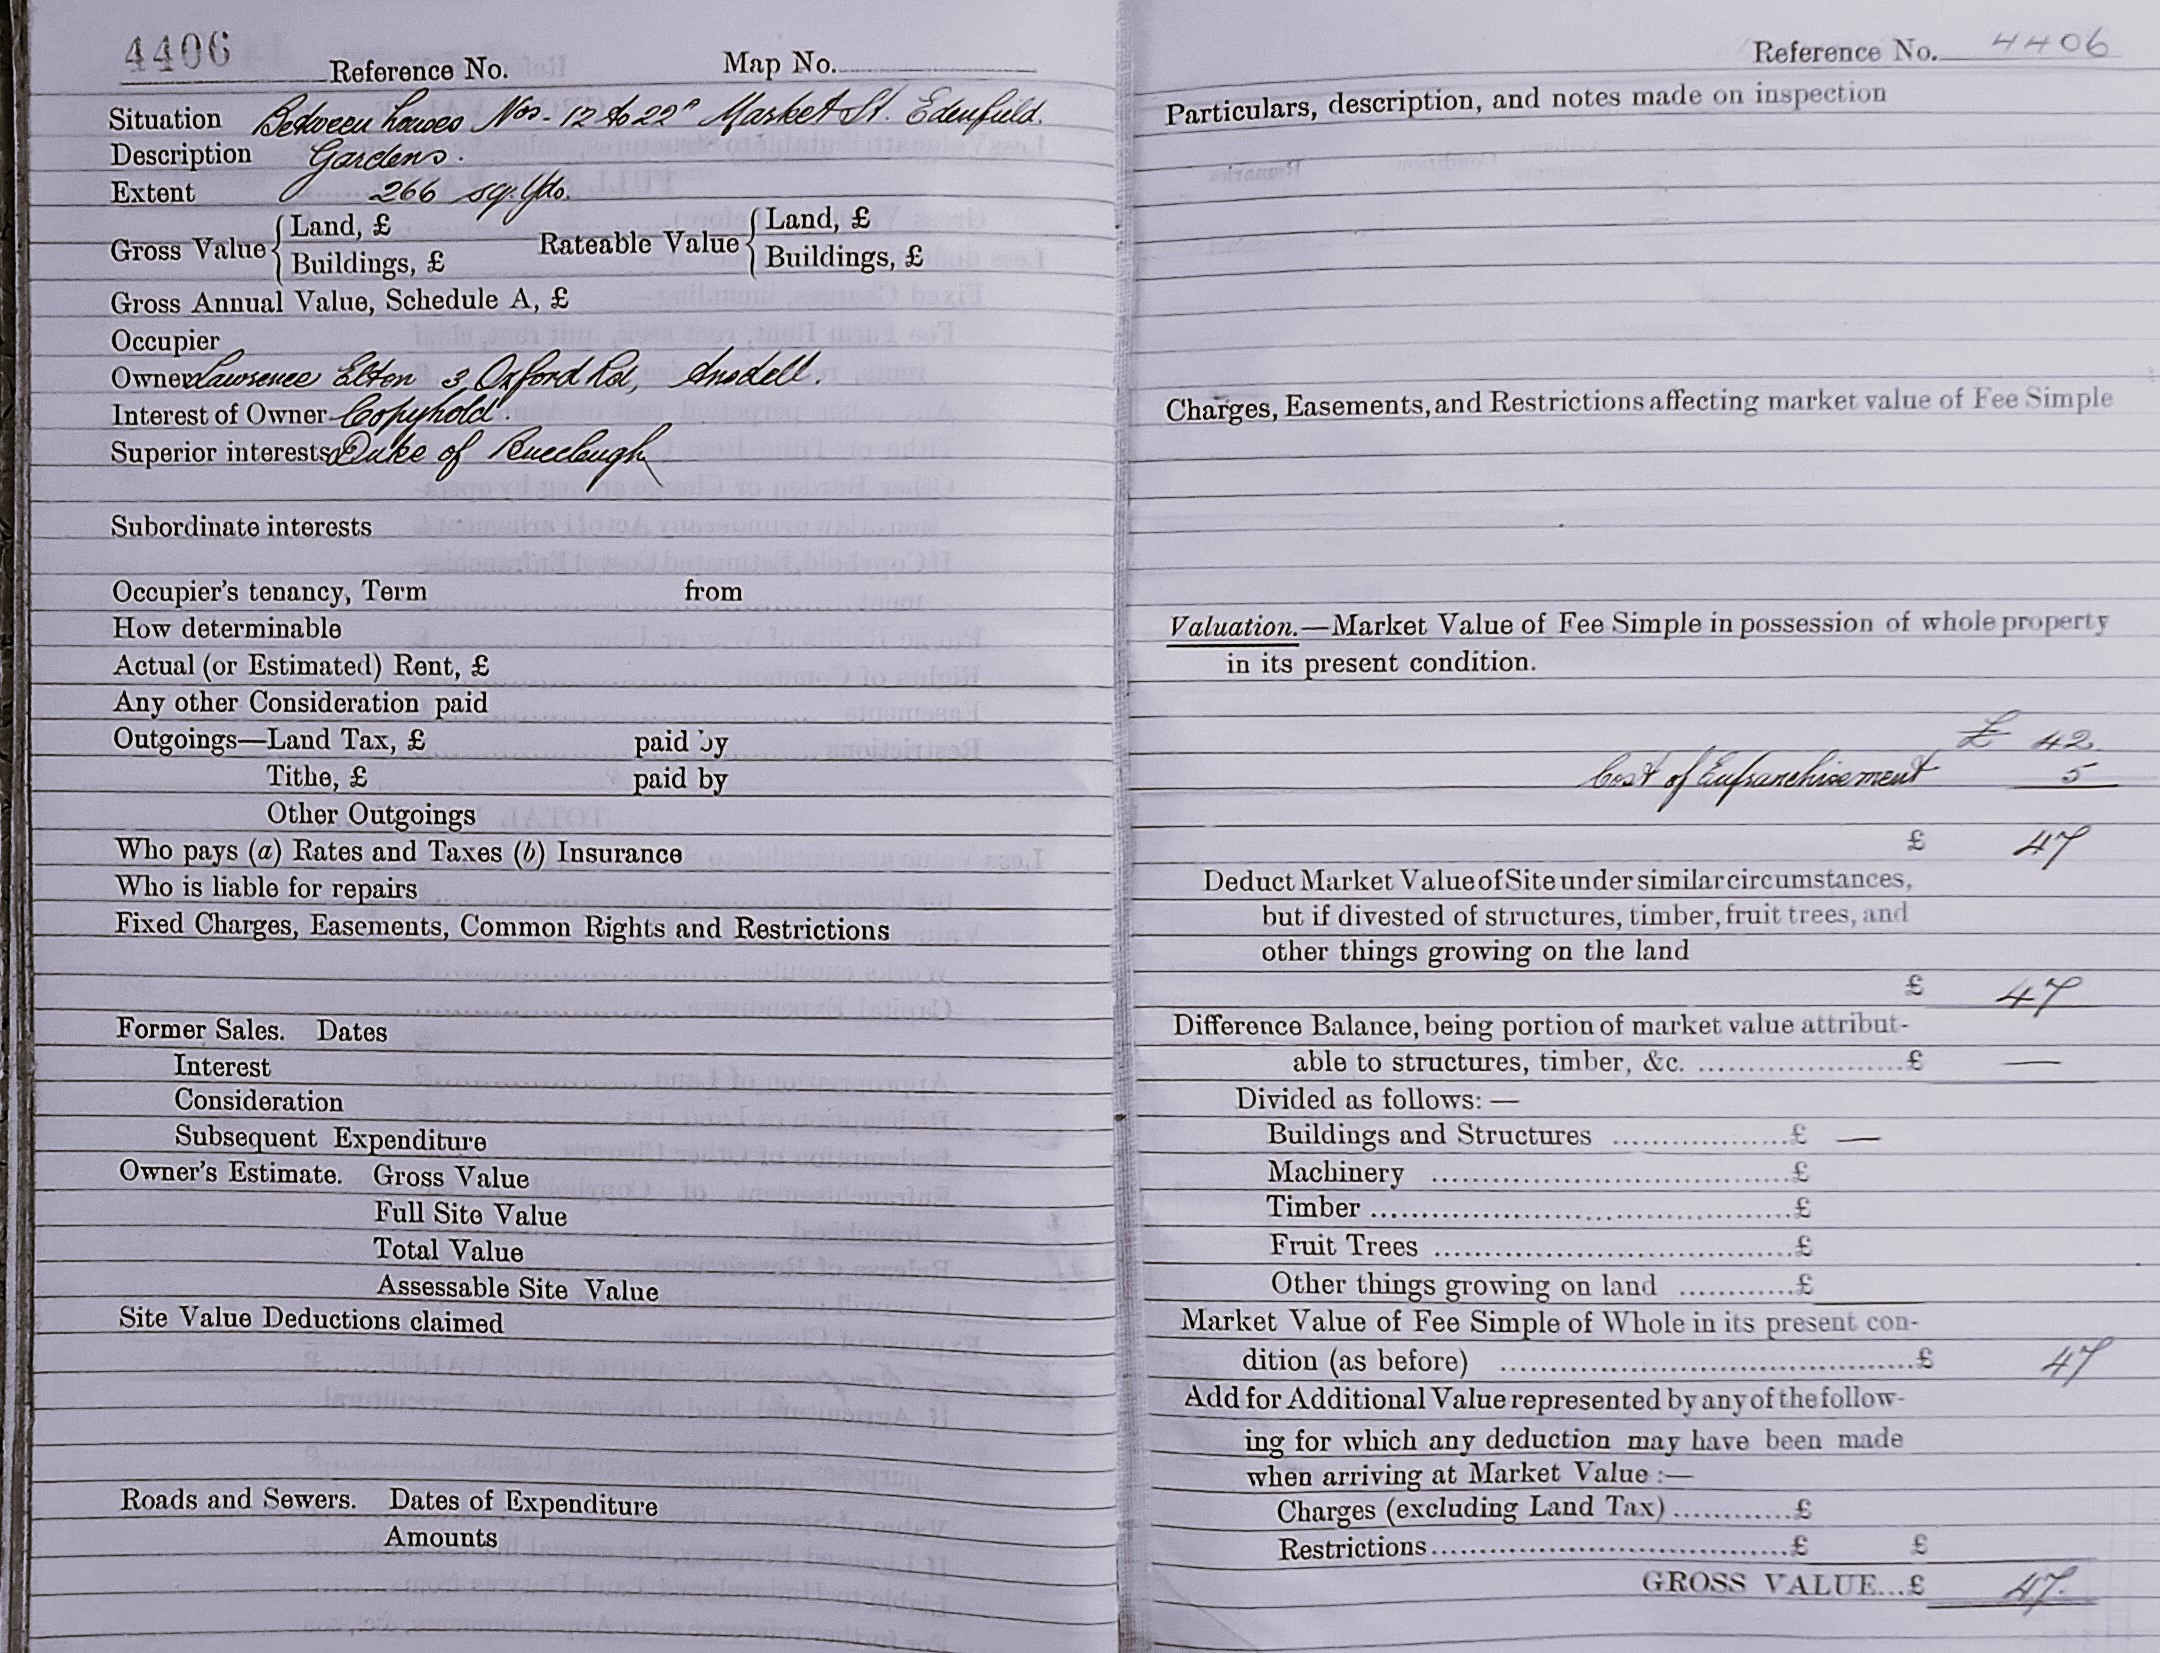 4406 Reference No. Map No.
Situation Between houses Nos. 12 to 22" Market St. Edenfield.
Description Gardens.
Extent 266 sq. Yds.
Gross Value { Land, £ Rateable Value { Land, £
Buildings, £ Buildings, £
Gross Annual Value, Schedule A, £
Occupier
Owner Lawrence Elton 3, Oxford Rd, Ansdell.
Interest of Owner Copyhold.
Superior interests Duke of Buccleugh
Subordinate interests
Occupier's tenancy, Term from
How determinable
Actual (or Estimated) Rent, £
Any other Consideration paid
Outgoings—Land Tax, £ paid by
Tithe, £ paid by
Other Outgoings
Who pays (a) Rates and Taxes (b) Insurance
Who is liable for repairs
Fixed Charges, Easements, Common Rights and Restrictions
Former Sales. Dates
Interest
Consideration
Subsequent Expenditure
Owner's Estimate. Gross Value
Full Site Value
Total Value
Assessable Site Value
Site Value Deductions claimed
Roads and Sewers. Dates of Expenditure
Amounts
Reference No. 4406
Particulars, description, and notes made on inspection
Charges, Easements, and Restrictions affecting market value of Fee Simple
Valuation.—Market Value of Fee Simple in possession of whole property
in its present condition.
£ 42
Cost of Enfranchisement 5
£ 47
Deduct Market Value of Site under similar circumstances,
but if divested of structures, timber, fruit trees, and
other things growing on the land
£ 47
Difference Balance, being portion of market value attribut-
able to structures, timber, &c. ..................... £ —
Divided as follows: —
Buildings and Structures .................. £ —
Machinery .................. £
Timber .................. £
Fruit Trees .................. £
Other things growing on land ............ £
Market Value of Fee Simple of Whole in its present con-
dition (as before) .................. £ 47
Add for Additional Value represented by any of the follow-
ing for which any deduction may have been made
when arriving at Market Value :—
Charges (excluding Land Tax) ............ £
Restrictions .................. £ £
GROSS VALUE... £ 47.